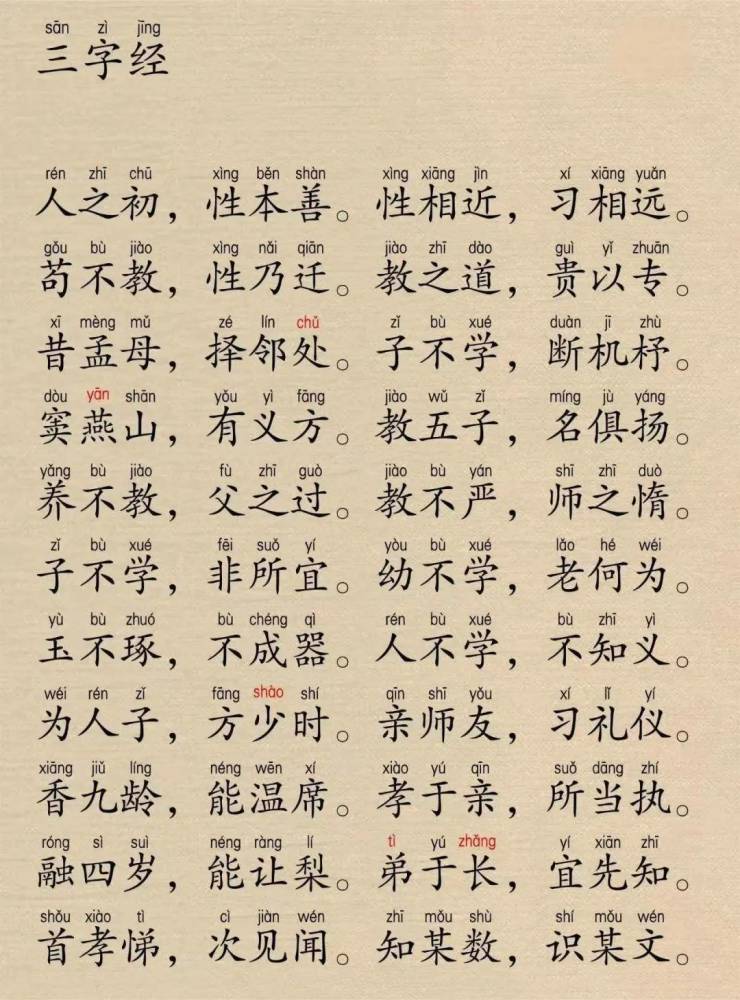 sān zì jīng
三字经
rén zhī chū xìng běn shàn xìng xiāng jìn xí xiāng yuǎn
人之初，性本善。性相近，习相远。
gǒu bù jiào xìng nǎi qiān jiào zhī dào guì yǐ zhuān
苟不教，性乃迁。教之道，贵以专。
xī mèng mǔ zé lín chǔ zǐ bù xué duàn jī zhù
昔孟母，择邻处。子不学，断机杼。
dòu yān shān yǒu yì fāng jiào wǔ zǐ míng jù yáng
窦燕山，有义方。教五子，名俱扬。
yǎng bù jiào fù zhī guò jiào bù yán shī zhī duò
养不教，父之过。教不严，师之惰。
zǐ bù xué fēi suǒ yí yòu bù xué lǎo hé wéi
子不学，非所宜。幼不学，老何为。
yù bù zhuó bù chéng qì rén bù xué bù zhī yì
玉不琢，不成器。人不学，不知义。
wéi rén zǐ fāng shào shí qīn shī yǒu xí lǐ yí
为人子，方少时。亲师友，习礼仪。
xiāng jiǔ líng néng wēn xí xiào yú qīn suǒ dāng zhí
香九龄，能温席。孝于亲，所当执。
róng sì suì néng ràng lí tì yú zhǎng yí xiān zhī
融四岁，能让梨。弟于长，宜先知。
shǒu xiào tì cì jiàn wén zhī mǒu shù shí mǒu wén
首孝悌，次见闻。知某数，识某文。